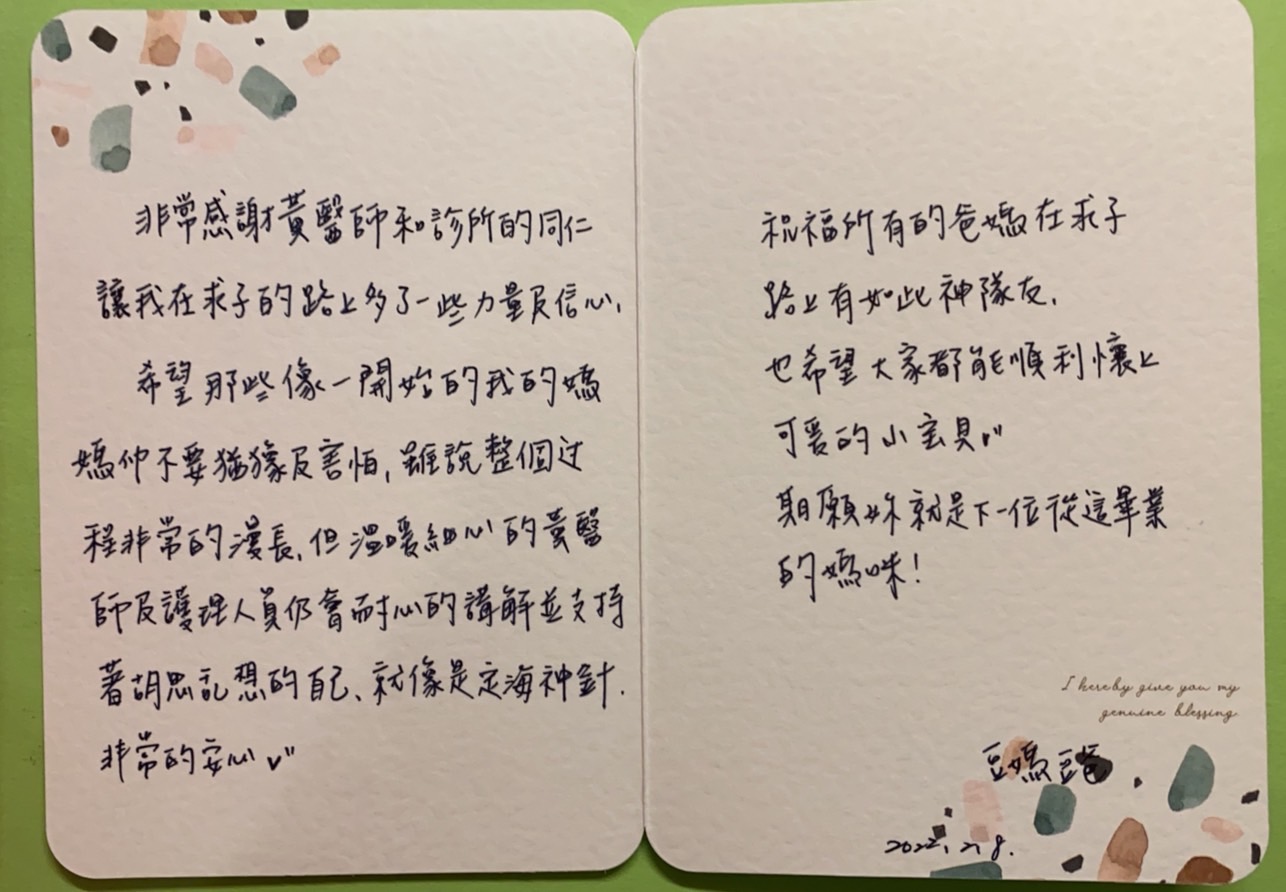 非常感謝黃醫師和診所的同仁
讓我在求子的路上多了一些力量及信心,
希望那些像一開始的我的媽
媽們不要猶豫及害怕,雖說整個过
程非常的漫長,但溫暖細心的黃醫
師及護理人員仍會耐心的講解並支持
著胡思亂想的自己、就像是定海神針.
非常的安心
祝福所有的爸媽在求子
路上有如此神隊友.
也希望大家都能順利懷上
可愛的小宝貝
期願妳就是下一位從這畢業
的媽咪!
I hereby give you my
genuine blessing.
豆媽豆爸
2022, 2, 8.